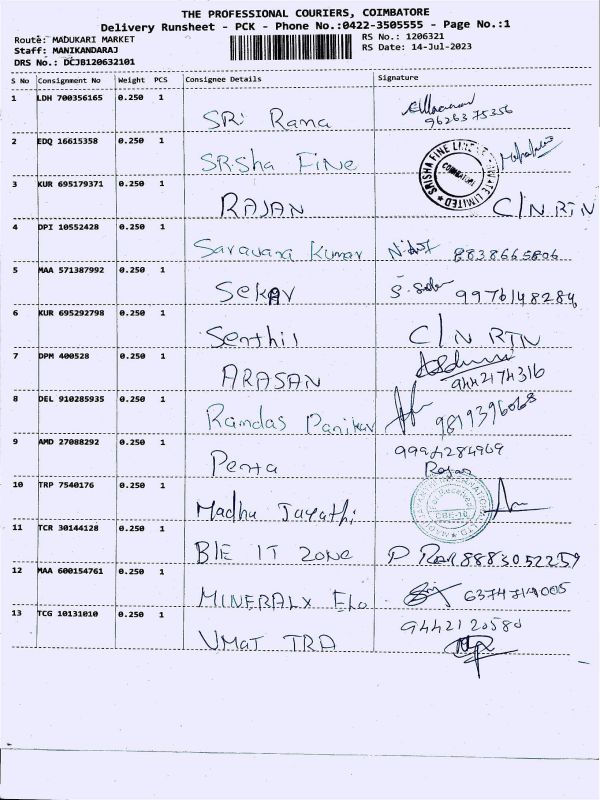 THE PROFESSIONAL COURIERS, COIMBATORE
Delivery Runsheet - PCK - Phone No.:0422-3505555 - Page No.:1
Route: MADUKARI MARKET RS No.: 1206321
Staff: MANIKANDARAJ RS Date: 14-Jul-2023
DRS No.: DCJB120632101
S No Consignment No Weight PCS Consignee Details Signature
1 LDH 700356165 0.250 1
SRi Rama 9626375356
2 EDQ 16615358 0.250 1
SRSha FiNe SRISHA FINE PRIVATE LIMITED COIMBATORE
3 KUR 695179371 0.250 1
RAJAN C/N RTN
4 DPI 10552428 0.250 1
Saravana Kumar 8838665806
5 MAA 571387992 0.250 1
SeKAr 9976148284
6 KUR 695292798 0.250 1
Senthil C/N RTN
7 DPM 400528 0.250 1
ARASAN 9442174316
8 DEL 910285935 0.250 1
Ramdas Panikar 9819396068
9 AMD 27088292 0.250 1 9994284969
Penta Rajan
10 TRP 7540176 0.250 1
Madhu Jayathi
11 TCR 30144128 0.250 1
BIE IT Zone 8883052259
12 MAA 600154761 0.250 1
MINERALX Elo
13 TCG 10131010 0.250 1 9442120580
VMaT TRA